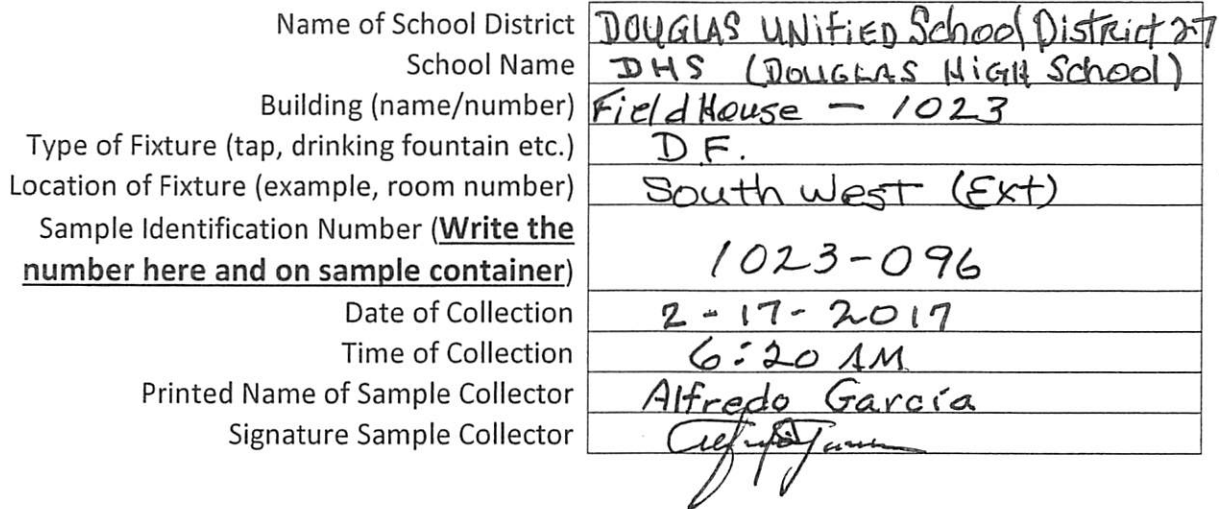 Name of School District DOUGLAS UNIFIED School District 27
School Name DHS (DOUGLAS HIGH School)
Building (name/number) Field House - 1023
Type of Fixture (tap, drinking fountain etc.) D.F.
Location of Fixture (example, room number) South West (Ext)
Sample Identification Number (Write the
number here and on sample container) 1023-096
Date of Collection 2-17-2017
Time of Collection 6:20 AM
Printed Name of Sample Collector Alfredo García
Signature Sample Collector